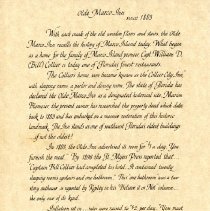 Olde Marco Inn
since 1883
With each creak of the old wooden floors and stairs, the Olde
Marco Inn recalls the history of Marco Island today. What began
as a home for the family of Marco Island pioneer Capt. William D.
(Bill) Collier is today one of Florida's finest restaurants.
The Collier's home soon became known as the Collier City Inn,
with sleeping rooms a parlor and dining room. The state of Florida has
declared the Olde Marco Inn as a designated historical site. Marion
the present owner has researched the property dead which date
back to 1883 and has embarked on a massive restoration of this historic
landmark. The Inn stands as one of southwest Florida's oldest buildings
of the oldest!
In 1883, the Olde Inn advertised its room for $1 a day. You
furnished the meat. By 1896 the Ft. Myers Press reported that
Captain Bill Collier had completed his hotel. It contained twenty
sleeping rooms upstairs and one bathroom. The one bathroom was a two-
story outhouse as reported by Ripley in his Believe it or Not column
the only one of its kind.
Inflation set in rates were raised to $2 per day. You must